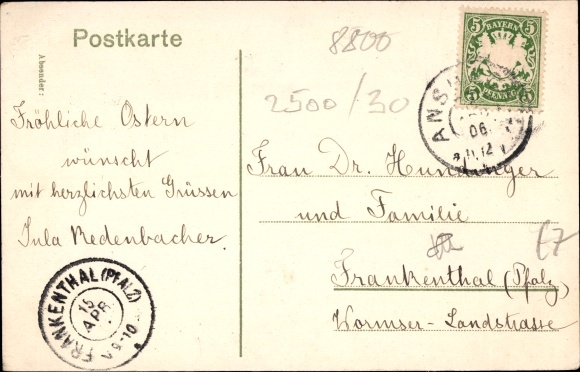 Postkarte
Absender:
8800
2500/30
5 BAYERN 5
5 PFENNIG 5
ANS
06.
11.12
Fröhliche Ostern
wünscht
mit herzlichsten Grüssen
Jula Redenbacher.
Frau Dr. Hundinger
und Familie
Frankenthal (Pfalz)
Wormser-Landstrasse
E7
FRANKENTHAL (PFALZ)
15
APR
9-10